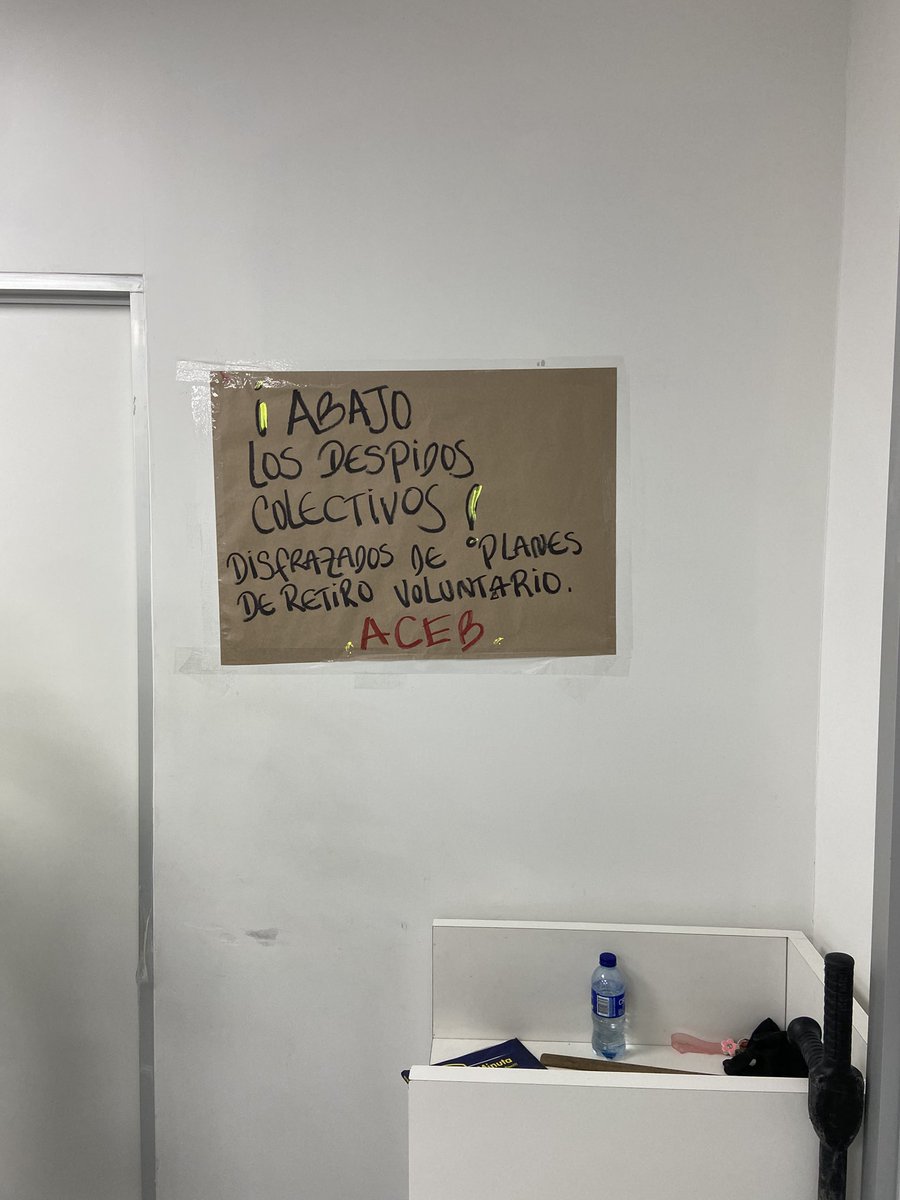 ¡ ABAJO
LOS DESPIDOS
COLECTIVOS !
DISFRAZADOS DE "PLANES
DE RETIRO VOLUNTARIO.
ACEB
Minuta